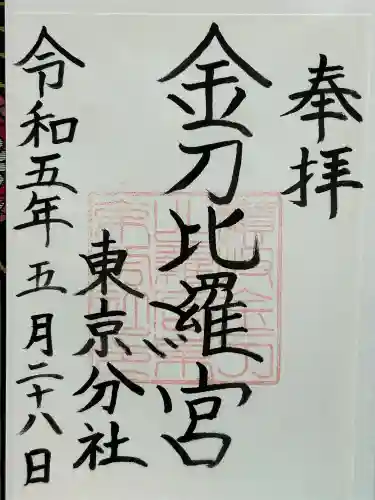 奉拝
金刀比羅宮
東京分社
令和五年五月二十八日